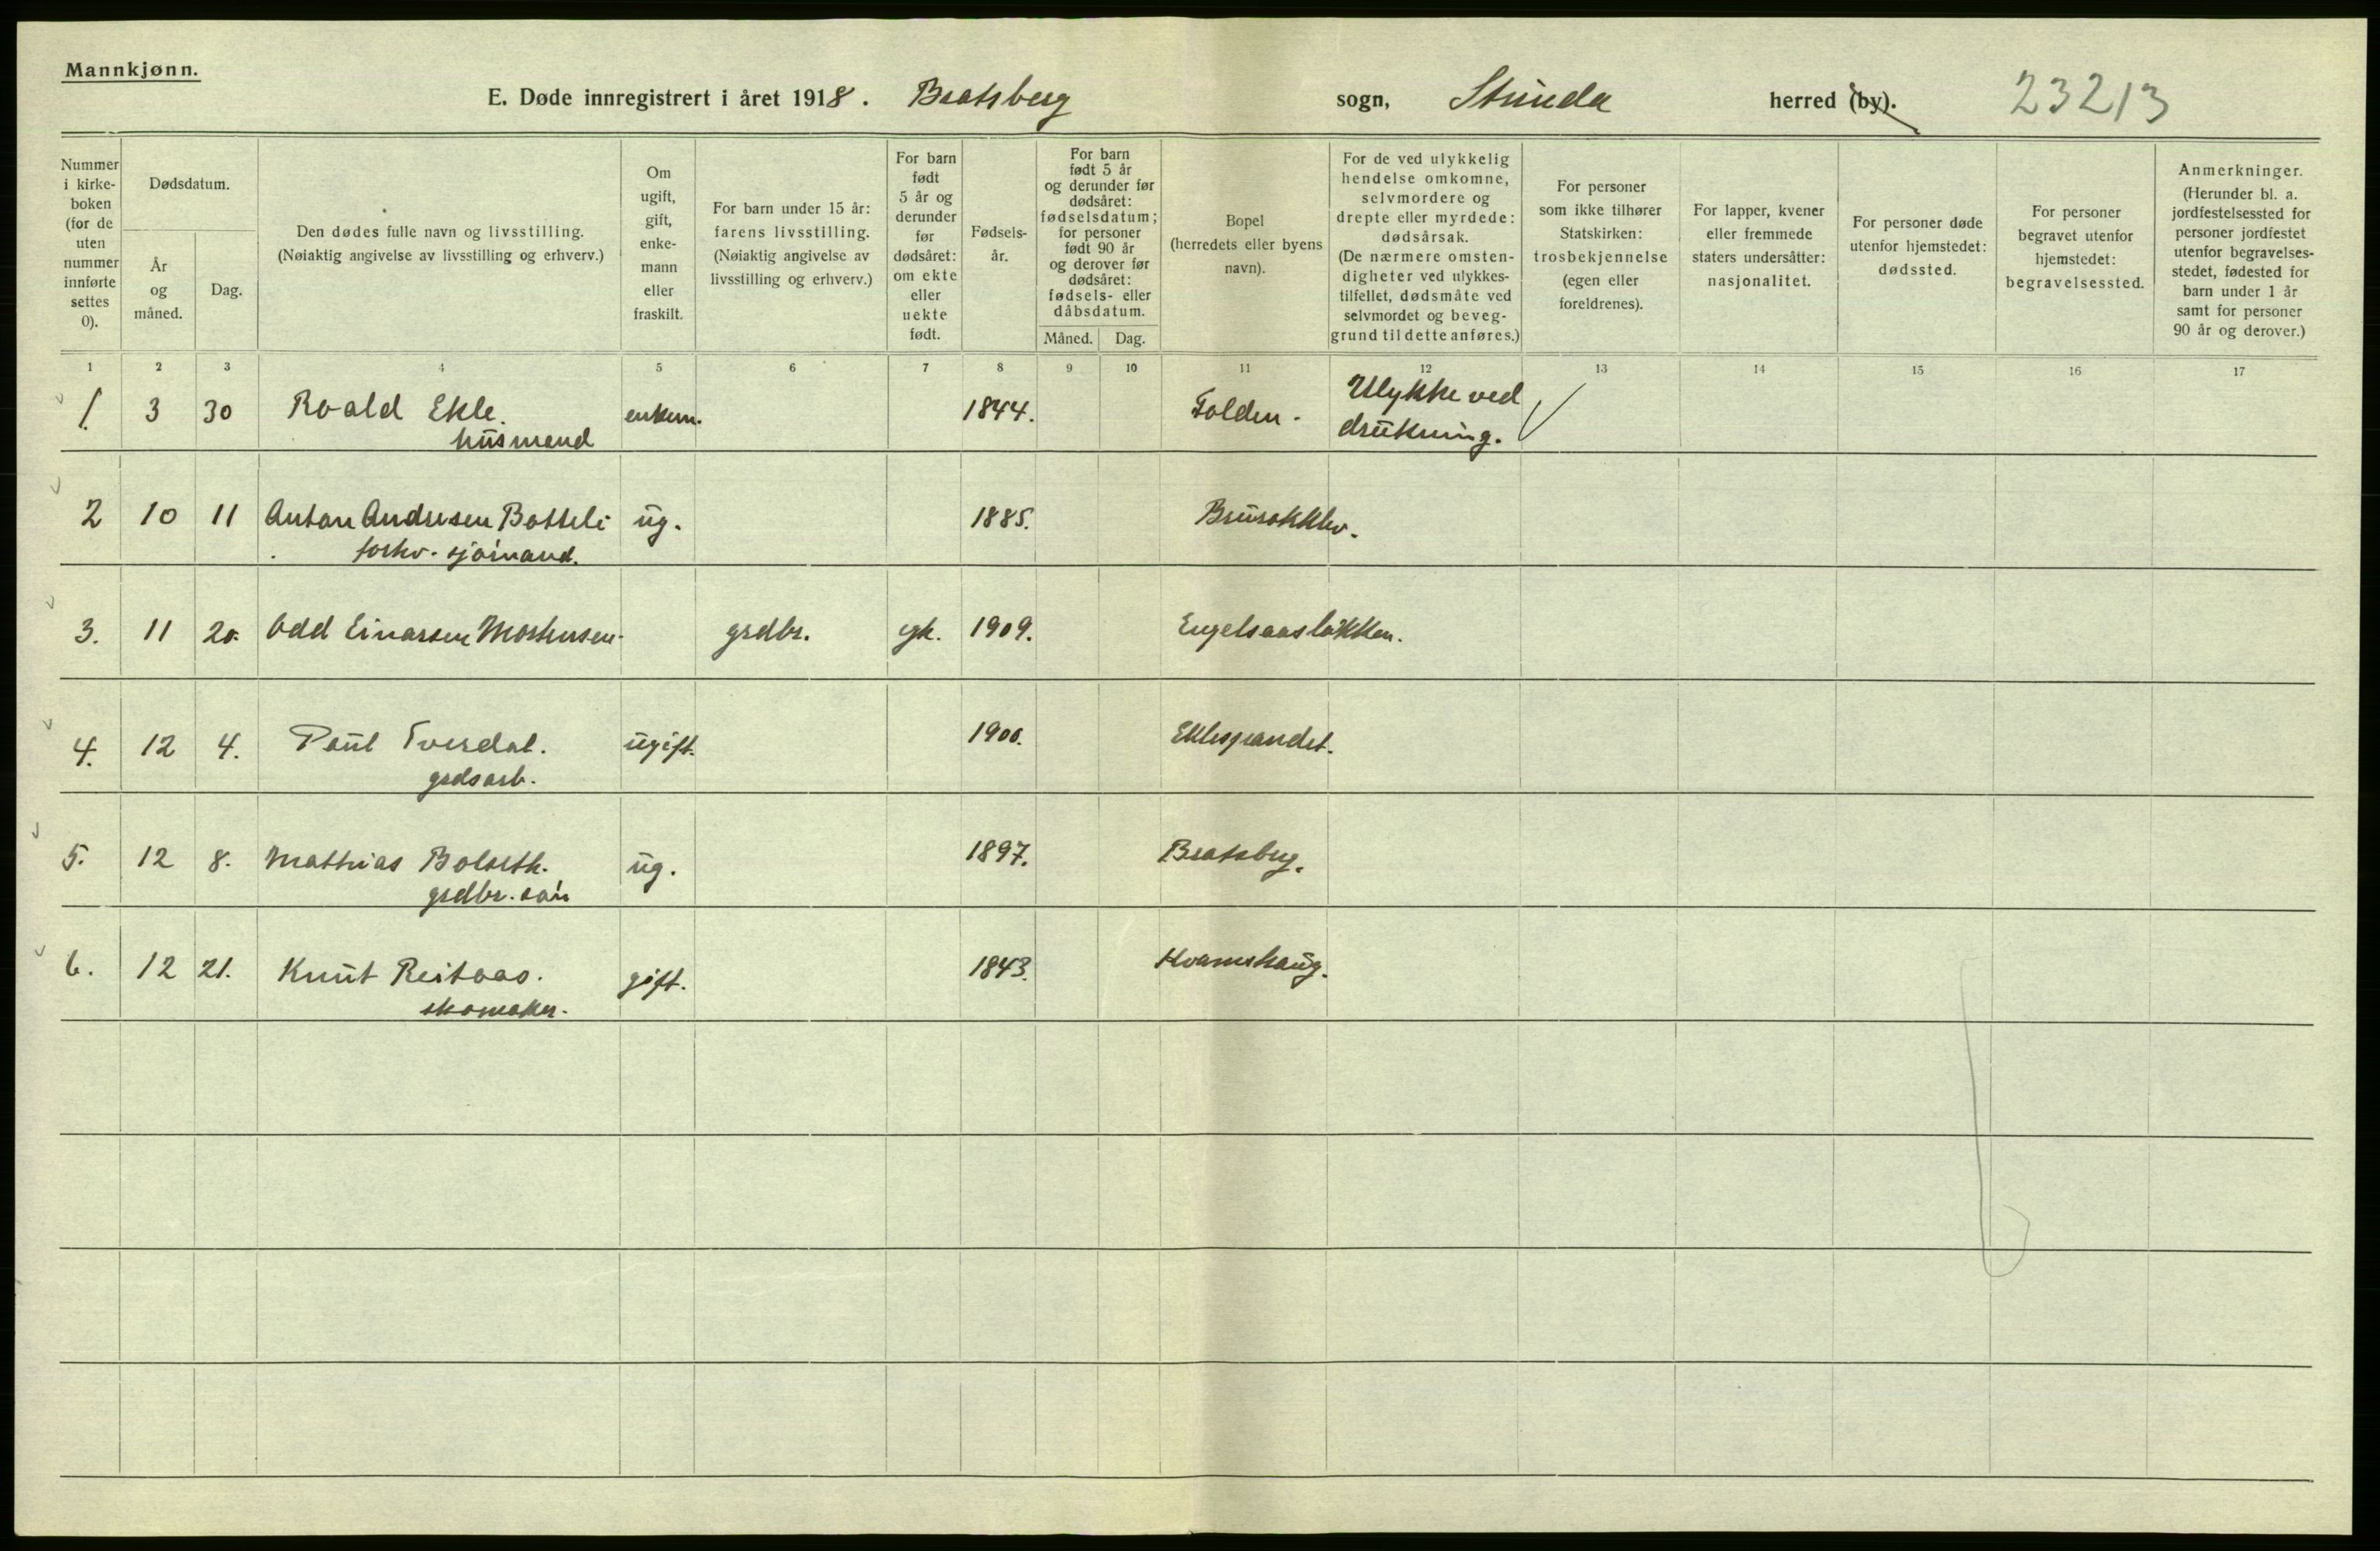 Mannkjønn.
E. Døde innregistrert i året 1918. Bratsberg sogn, Strinda herred (by). 23213
Nummer i kirke-boken (for de uten nummer innførte settes 0).
Dødsdatum.
År og måned.
Dag.
Den dødes fulle navn og livsstilling.
(Nøiaktig angivelse av livsstilling og erhverv.)
Om ugift, gift, enke-mann eller fraskilt.
For barn under 15 år: farens livsstilling.
(Nøiaktig angivelse av livsstilling og erhverv.)
For barn født 5 år og derunder før dødsåret: om ekte eller uekte født.
Fødsels-år.
For barn født 5 år og derunder før dødsåret: fødselsdatum; for personer født 90 år og derover før dødsåret: fødsels- eller dåbsdatum.
Måned.
Dag.
Bopel
(herredets eller byens navn).
For de ved ulykkelig hendelse omkomne, selvmordere og drepte eller myrdede: dødsårsak.
(De nærmere omsten-digheter ved ulykkes-tilfellet, dødsmåte ved selvmordet og beveg-grund til dette anføres.)
For personer som ikke tilhører Statskirken: trosbekjennelse
(egen eller foreldrenes).
For lapper, kvener eller fremmede staters undersåtter: nasjonalitet.
For personer døde utenfor hjemstedet: dødssted.
For personer begravet utenfor hjemstedet: begravelsessted.
Anmerkninger.
(Herunder bl. a. jordfestelsessted for personer jordfestet utenfor begravelses-stedet, fødested for barn under 1 år samt for personer 90 år og derover.)
1 2 3 4 5 6 7 8 9 10 11 12 13 14 15 16 17
1. 3 30 Roald Ekle. enkem. 1844. Folden. Ulykke ved
husmand drukning.
2 10 11 Anton Andresen Botteli ug. 1885. Brurokklev.
forhv. sjømand.
3. 11 20. Odd Einarsen Mortensen. grdbr. egt. 1909. Engelsaasløkken.
4. 12 4. Paul Tverdal. ugift. 1900. Eklesgrandet.
grdsarb.
5. 12 8. Mathias Bolseth. ug. 1897. Bratsberg.
grdbr. søn
6. 12 21. Knut Reitaas. gift. 1843. Kvamshaug.
skomaker.